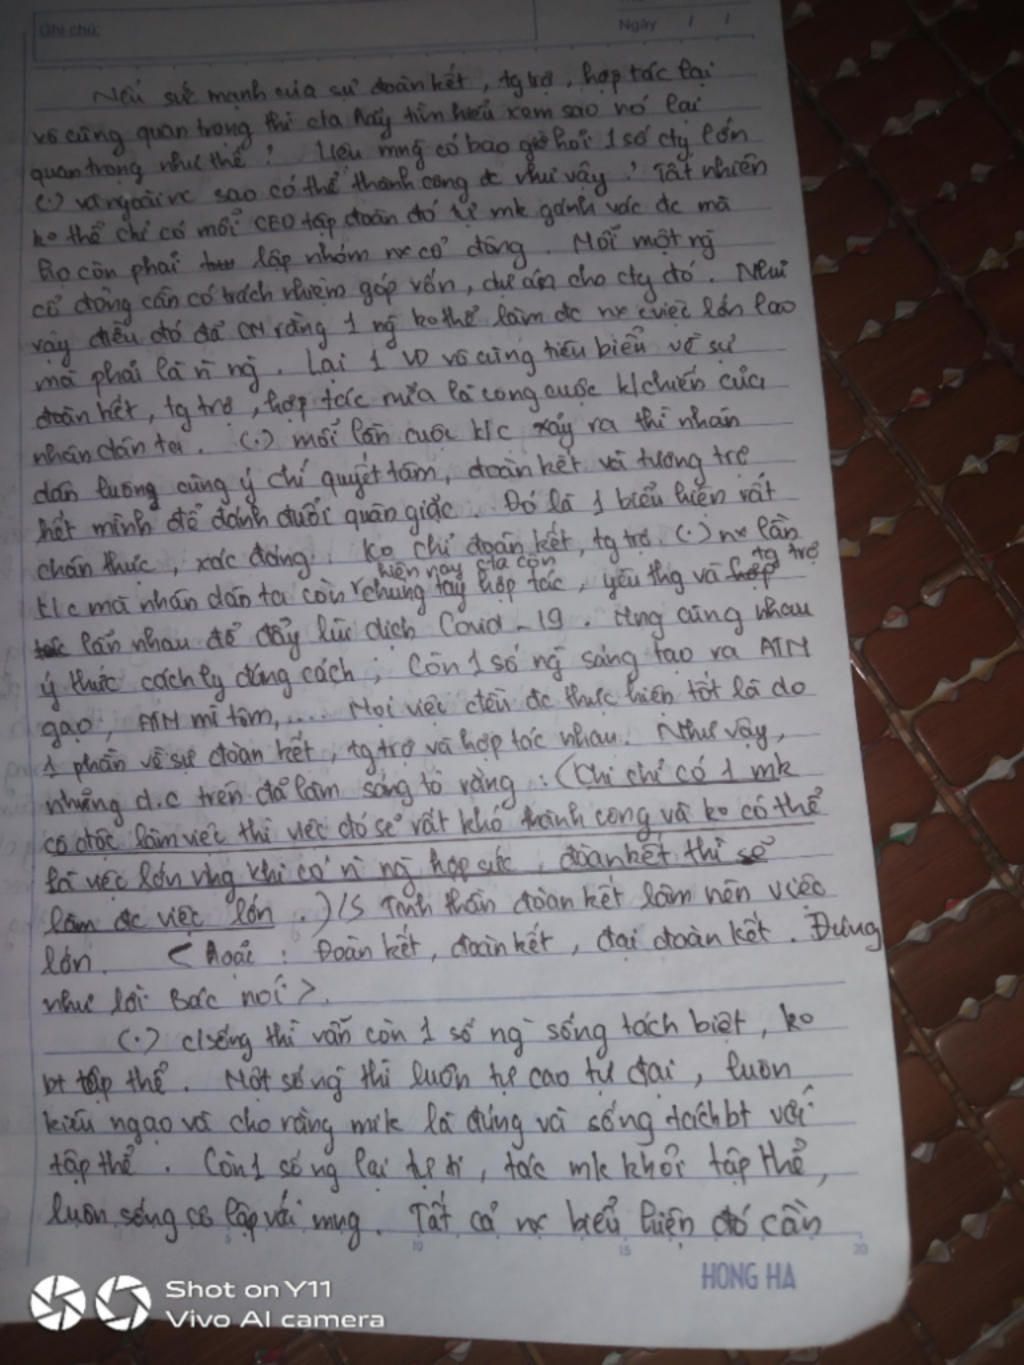 Ghi chú:
Ngày / /
Nếu sức mạnh của sự đoàn kết, tg trợ, hợp tác lại
vô cùng quan trọng thì cta hãy tìm hiểu xem sao nó lại
quan trọng như thế? Liệu mng có bao giờ hỏi 1 số cty lớn
(.) và ngoài nc sao có thể thành công đc như vậy? Tất nhiên
ko thể chỉ có mỗi CEO tập đoàn đó tự mk gánh vác đc mà
họ còn phải lập nhóm nx cổ đông. Mỗi một ng
cổ đông cần có trách nhiệm góp vốn, dự án cho cty đó. Như
vậy điều đó đã CM rằng 1 ng ko thể làm đc nx cviệc lớn lao
mà phải là n ng. Lại 1 VD vô cùng tiêu biểu về sự
đoàn kết, tg trợ, hợp tác nữa là công cuộc k/chiến của
nhân dân ta. (.) mỗi lần cuộc k/c xảy ra thì nhân
dân luông cùng ý chí quyết tâm, đoàn kết và tương trợ
hết mình để đánh đuổi quân giặc. Đó là 1 biểu hiện rất
chân thực, xác đáng. Ko chỉ đoàn kết, tg trợ (.) nx lần
k/c mà nhân dân ta còn hiện nay cta còn chung tay hợp tác, yêu thg và tg trợ
lẫn nhau để đẩy lùi dịch Covid-19. Mng cùng nhau
ý thức cách ly đúng cách; Còn 1 số ng sáng tạo ra ATM
gạo, ATM mì tôm,.... Mọi việc đều đc thực hiện tốt là do
1 phần về sự đoàn kết, tg trợ và hợp tác nhau. Như vậy,
những d.c trên đã làm sáng tỏ rằng: (Khi chỉ có 1 mk
cô độc làm việc thì việc đó sẽ rất khó thành công và ko có thể
là việc lớn nhg khi có n ng hợp sức, đoàn kết thì sẽ
làm đc việc lớn.)/S Tinh thần đoàn kết làm nên việc
lớn. <hoặc: Đoàn kết, đoàn kết, đại đoàn kết. Đúng
như lời Bác nói>.
(.) c/sống thì vẫn còn 1 số ng sống tách biệt, ko
bt tập thể. Một số ng thì luôn tự cao tự đại, luôn
kiêu ngạo và cho rằng mk là đúng và sống tách bt với
tập thể. Còn 1 số ng lại tự ti, tác mk khỏi tập thể,
luôn sống cô lập với mng. Tất cả nx biểu hiện đó cần
5 10 15 20
HONG HA
Shot on Y11
Vivo AI camera